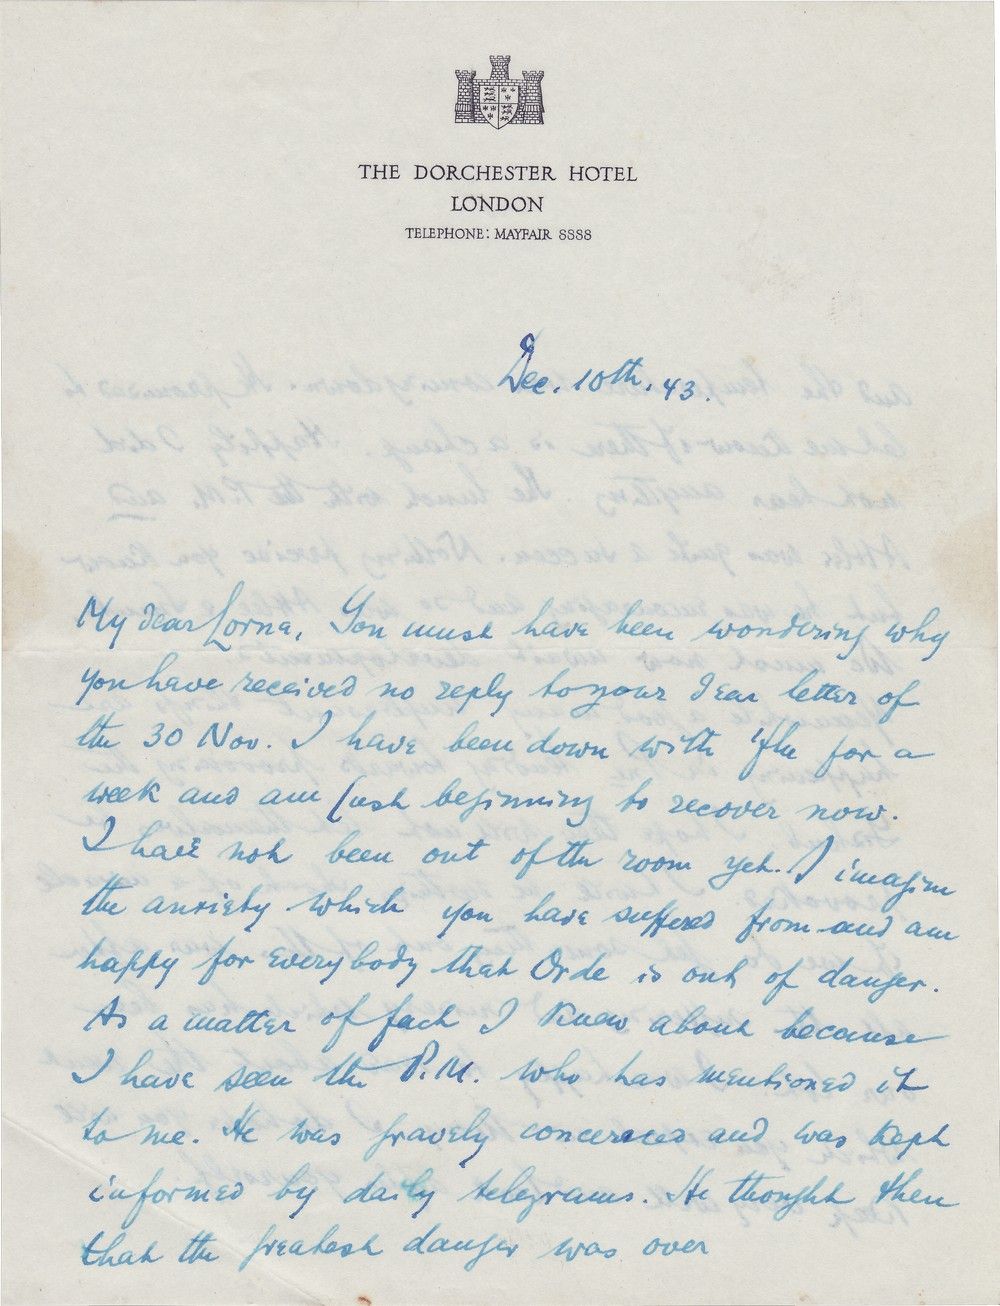 THE DORCHESTER HOTEL
LONDON
TELEPHONE: MAYFAIR 8888
Dec. 10th. 43.
My dear Lorna, You must have been wondering why
you have received no reply to your dear letter of
the 30 Nov. I have been down with 'flu for a
week and am just beginning to recover now.
I have not been out of the room yet. I imagine
the anxiety which you have suffered from and am
happy for everybody that Orde is out of danger.
As a matter of fact I knew about because
I have seen the P.M. who has mentioned it
to me. He was gravely concerned and was kept
informed by daily telegrams. He thought then
that the greatest danger was over